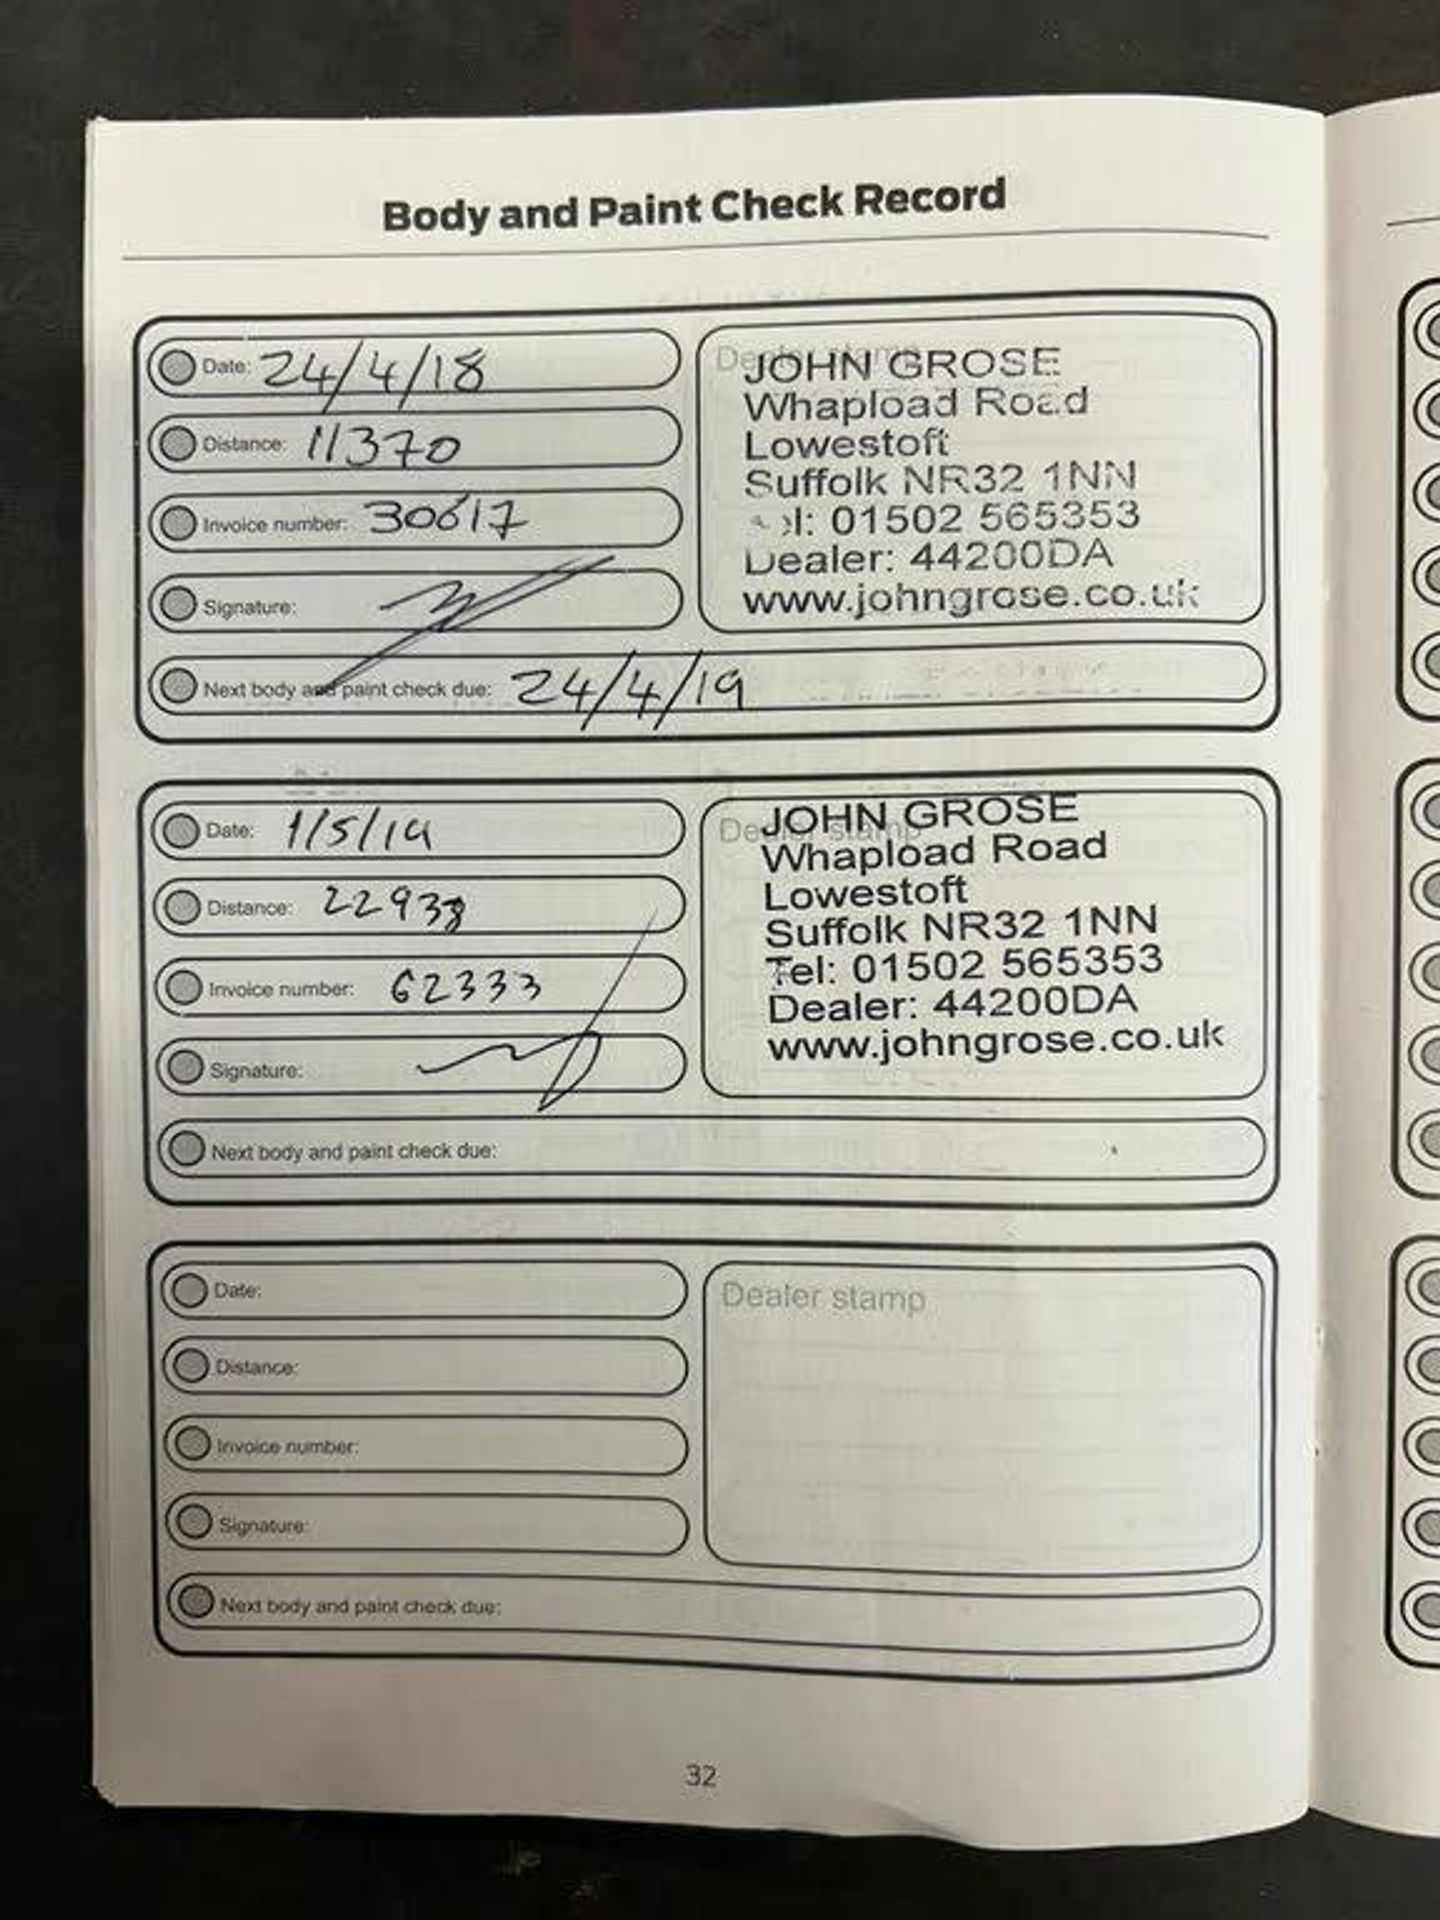 Body and Paint Check Record
Date: 24/4/18
Distance: 11370
Invoice number: 30617
Signature:
Next body and paint check due: 24/4/19
Dealer stamp
JOHN GROSE
Whapload Road
Lowestoft
Suffolk NR32 1NN
Tel: 01502 565353
Dealer: 44200DA
www.johngrose.co.uk
Date: 1/5/19
Distance: 22938
Invoice number: 62333
Signature:
Next body and paint check due:
Dealer stamp
JOHN GROSE
Whapload Road
Lowestoft
Suffolk NR32 1NN
Tel: 01502 565353
Dealer: 44200DA
www.johngrose.co.uk
Date:
Distance:
Invoice number:
Signature:
Next body and paint check due:
Dealer stamp
32